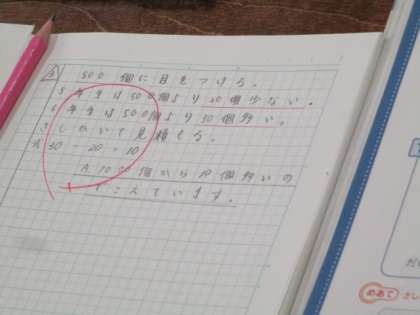 500個に目をつける。
5年生は500個より20個少ない。
6年生は500個より30個多い。
さしひいて見積もる。
式30-20=10
A 1000個から10個多いの
でこえています。
めあて